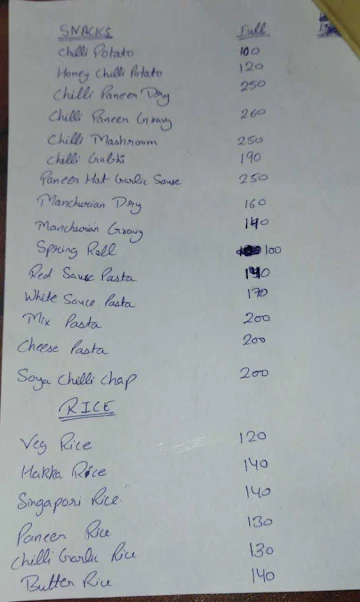 SNACKS Full
Chilli Potato 100
Honey Chilli Potato 120
Chilli Paneer Dry 250
Chilli Paneer Gravy 260
Chilli Mashroom 250
Chilli Gobhi 190
Paneer Hot Garlic Sause 250
Manchurian Dry 160
Manchurian Gravy 140
Spring Roll 100
Red Sause Pasta 140
White Sauce Pasta 170
Mix Pasta 200
Cheese Pasta 200
Soya Chilli Chap 200
RICE
Veg Rice 120
Hakka Rice 140
Singapori Rice. 140
Paneer Rice 130
Chilli Garlic Rice 130
Butter Rice 140